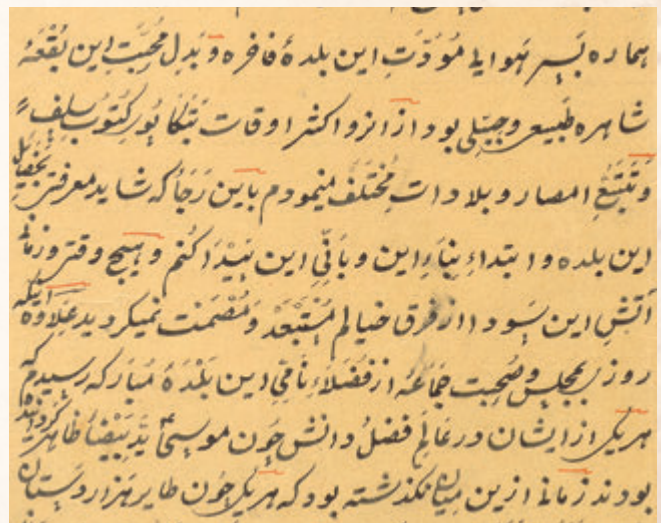 هماره بسر هوای مُوَدّتِ این بلدهٔ فاخره و بدل محبّتِ این بُقْعَهٔ
شاهره طَبِیعی و جِبِلّی بود از انرو اکثر اوقات بَتکاپُوی کُتُوبِ سلف
وَتَتَبُّعِ امصار و بلادات مُخْتَلَف مینمودم باین رَجَا که شاید معرفتی بِتَفْصِیل
این بلده و ابتداءِ بِنَاءِ این و بَانّیِ این پَیْدَا کنم و هیچ وقتی و زمانی
آتش این سَودا از فرق خیالم مُسْتَبْعَدْ وَمُضْمَنَتْ نمیکردید عَلاوه اینکه
روزی بمجلس وصُحبت جَمَاعَهٔ از فُضَلَاءِ نَامِیِ این بَلْدَهٔ مُبَارکه رسیدم که
هریکی از ایشان در عَالَمِ فضلُ دانش چُون موسیٰ یَدِ بَیْضَا ظاهر کردانیده
بودند زمانی ازین میان نکذشته بود که هریکی چُون طایر هزار دستان